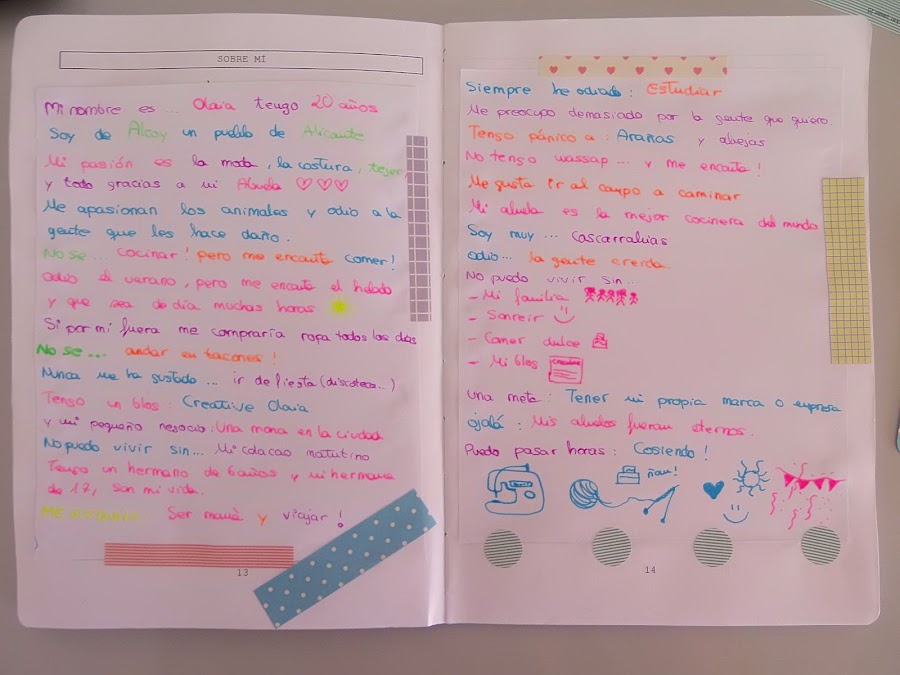 SOBRE MÍ
Mi nombre es ... Olaia tengo 20 años
Soy de Alcoy un pueblo de Alicante
Mi pasión es la moda, la costura, tejer,
y todo gracias a mi Abuela
Me apasionan los animales y odio a la
gente que les hace daño.
No se ... cocinar! pero me encanta comer!
Odio el verano, pero me encanta el helado
y que sea de día muchas horas
Si por mi fuera me compraría ropa todos los días
No se ... andar en tacones!
Nunca me ha gustado ... ir de fiesta (discoteca...)
Tengo un blog: Creative Olaia
y mi pequeño negocio: Una mona en la ciudad
No puedo vivir sin... Mi colacao matutino
Tengo un hermano de 6 años y mi hermana
de 17, son mi vida.
ME Ser mamà y viajar!
13
Siempre he odiado: Estudiar
Me preocupo demasiado por la gente que quiero.
Tengo pánico a: Arañas y abejas
No tengo wassap ... y me encanta!
Me gusta ir al campo a caminar
Mi abuela es la mejor cocinera del mundo
Soy muy ... Cascarrabias
Odio... la gente creída.
No puedo vivir sin...
- Mi familia
- Sonreir
- Comer dulce
- Mi blog
Una meta: Tener mi propia marca o empresa
ojalá: Mis abuelos fueran eternos.
Puedo pasar horas: Cosiendo!
ñam!
14